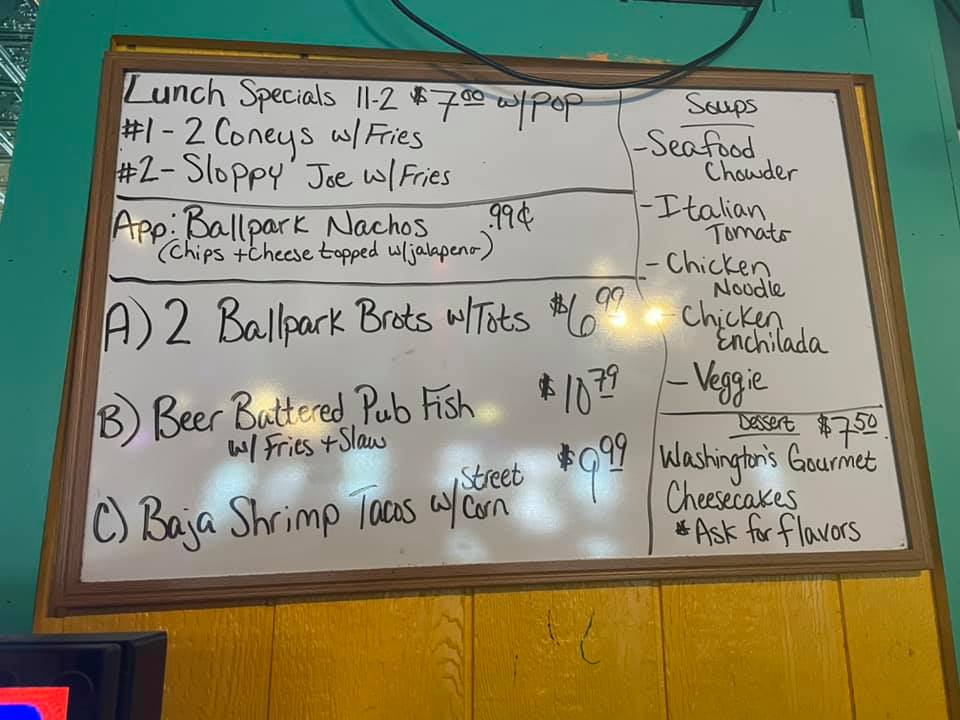 Lunch Specials 11-2 $7.00 w/pop
#1 - 2 Coneys w/Fries
#2 - Sloppy Joe w/Fries
App: Ballpark Nachos .99¢
(Chips + Cheese topped w/jalapeno)
A) 2 Ballpark Brots w/Tots $6.99
B) Beer Battered Pub Fish $10.79
w/ Fries + Slaw
C) Baja Shrimp Tacos w/ Street Corn $9.99
Soups
- Seafood
Chowder
- Italian
Tomato
- Chicken
Noodle
- Chicken
Enchilada
- Veggie
Dessert $7.50
Washington's Gourmet
Cheesecakes
* Ask for flavors